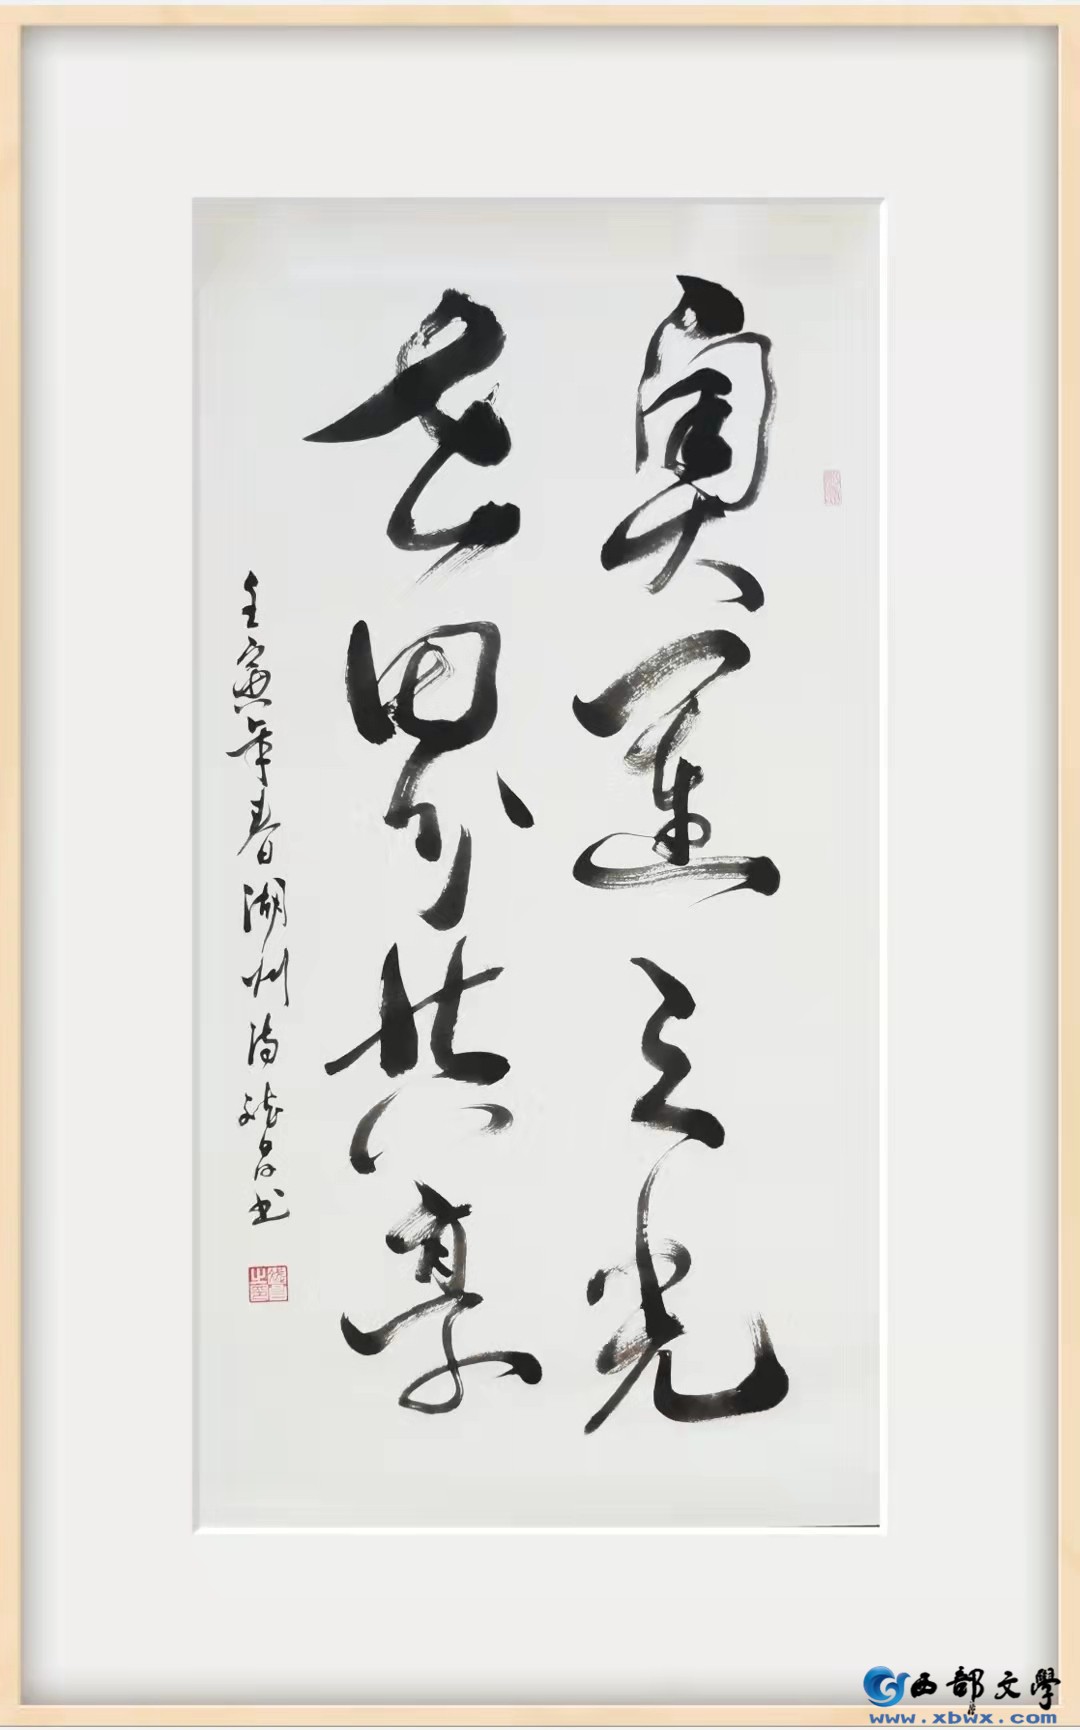 奥运之光
世界共享
壬寅年春湖州汤徳昌书
西部文学
www.xbwx.com